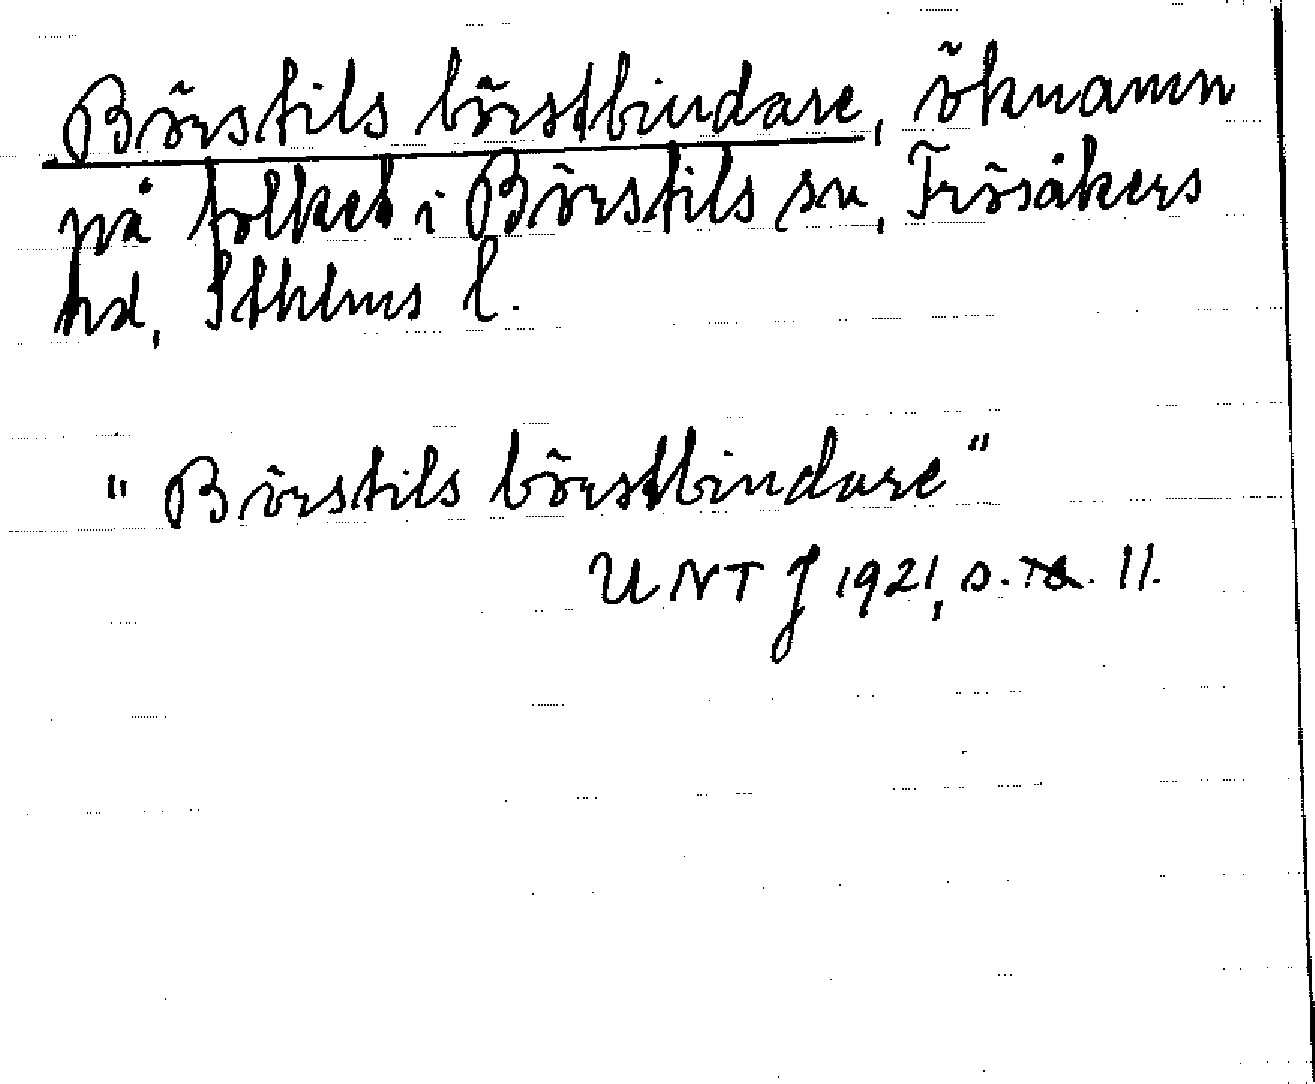 Börstils börstbindare, öknamn
på folket i Börstils sn, Frösåkers
hd, Sthlms l.
"Börstils börstbindare"
UNT J 1921, s. 11.